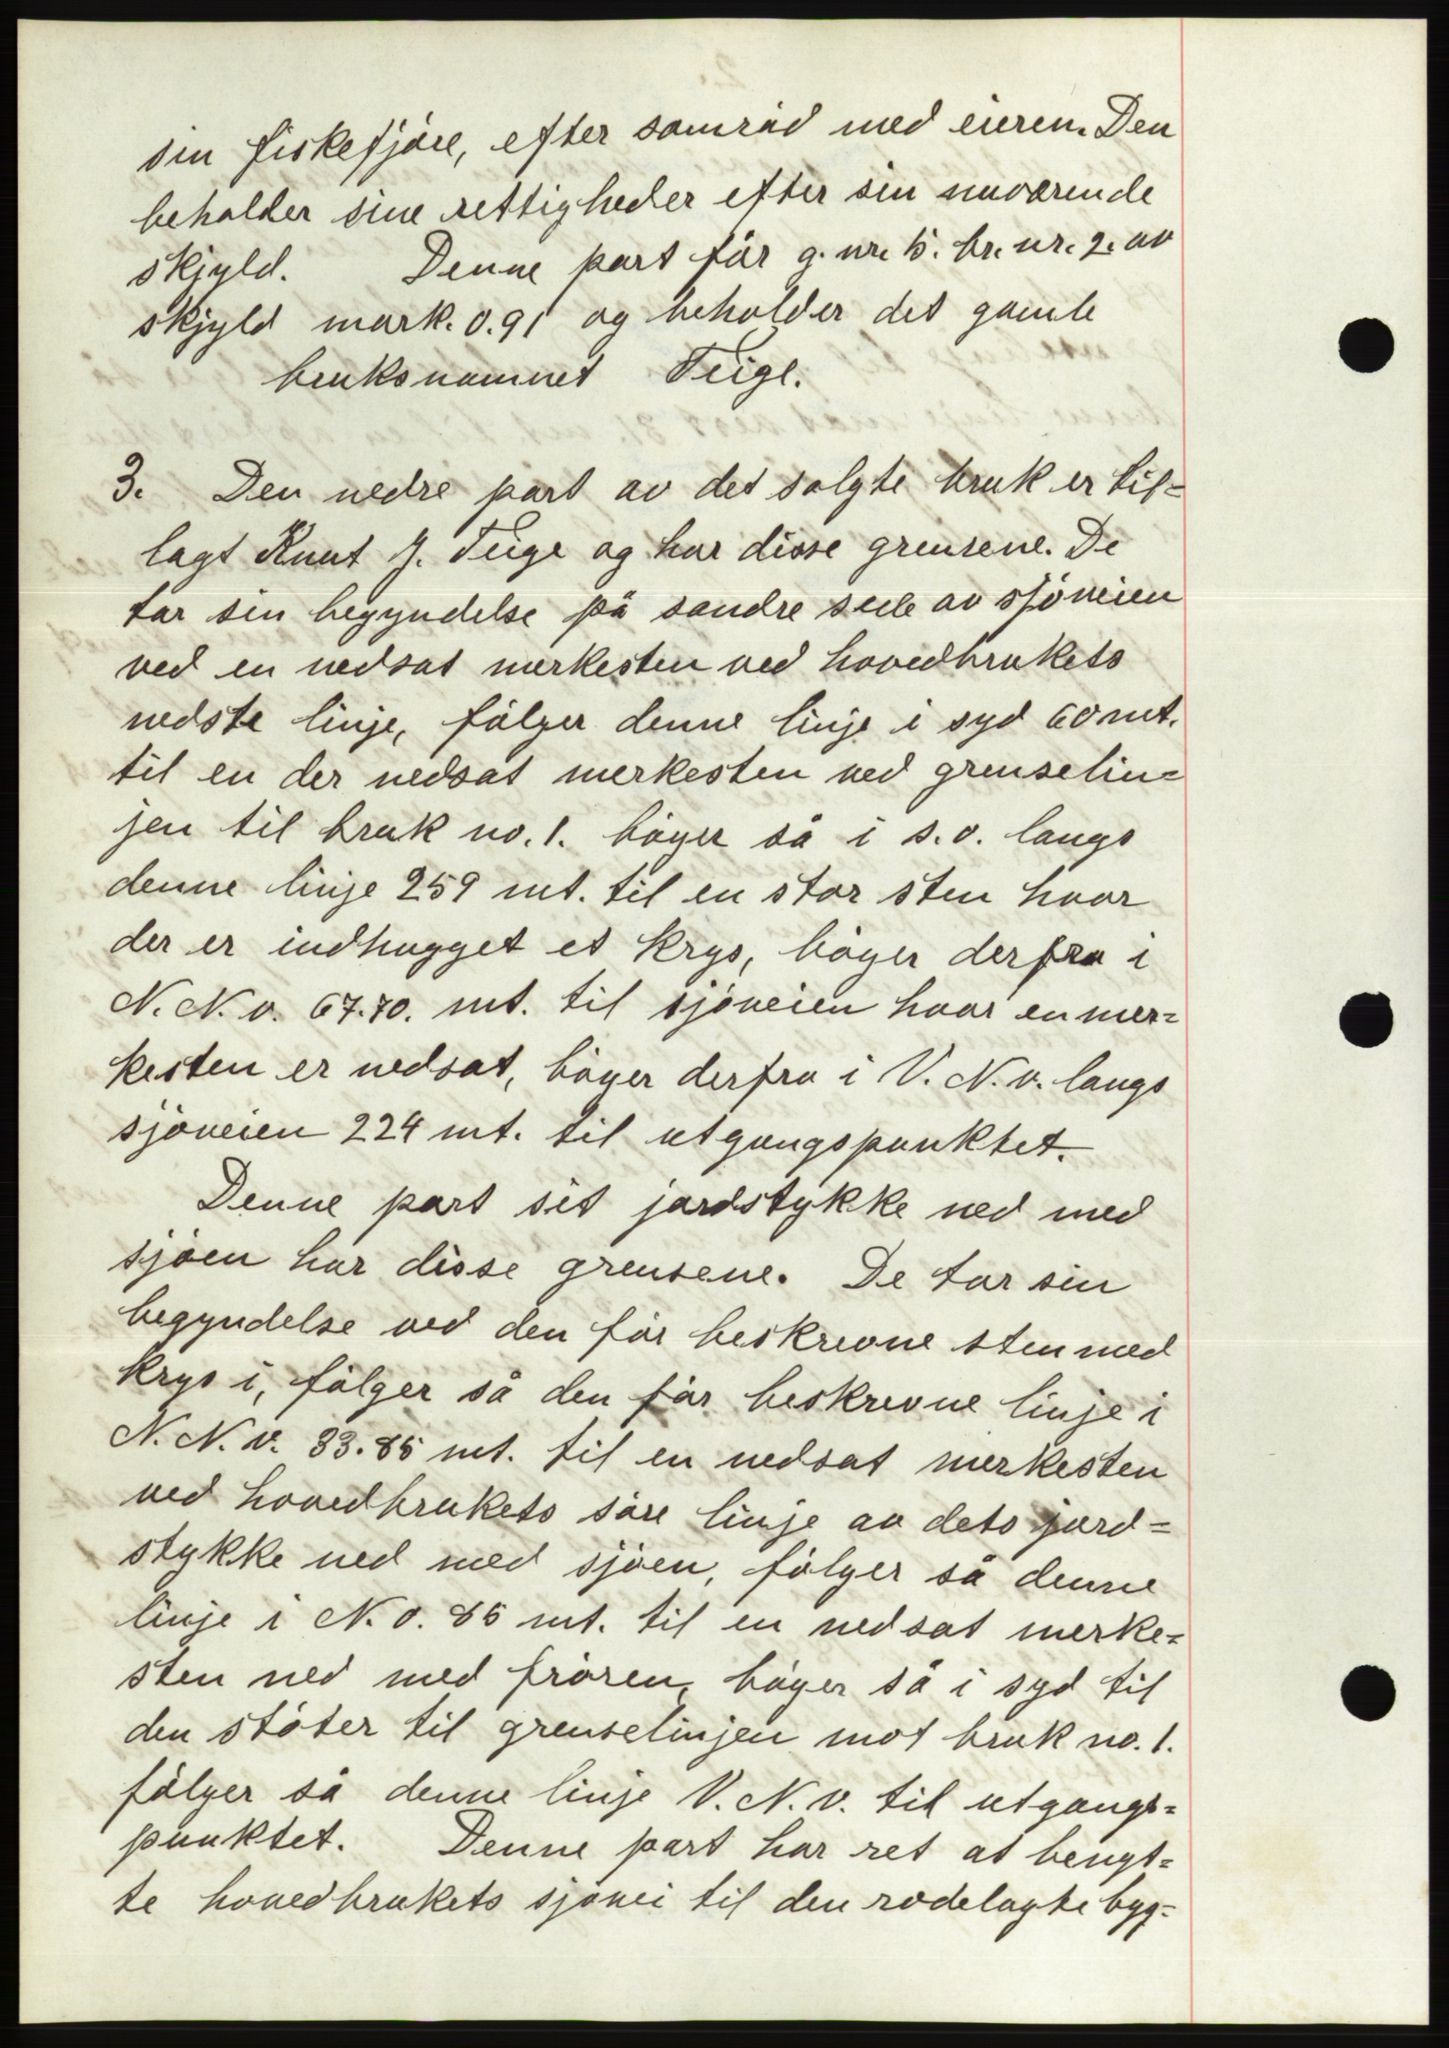 sin fiskefjöre, efter samråd med eieren. Den
beholder sine rettigheder efter sin nuværende
skjyld. Denne part får g. nr. 5. br. nr. 2. av
skjyld mark. 0.91 og beholder det gamle
bruksnamnet Teige.
3. Den nedre part av det solgte bruk er til=
lagt Knut J. Teige og har disse grensene. De
tar sin begyndelse på søndre side av sjöveien
ved en nedsat merkesten ved hovedbrukets
nedste linje, fölger denne linje i syd 60 mt.
til en der nedsat merkesten ved grenselin=
jen til bruk no. 1. böyer så i s. o. langs
denne linje 259 mt. til en stor sten hvor
der er indhugget et krys, böyer derfra i
N. N. v. 67.70. mt. til sjöveien hvor en mer=
kesten er nedsat, böyer derfra i V. N. v. langs
sjöveien 224 mt. til utgangspunktet.
Denne part sit jordstykke ned med
sjöen har disse grensene. De tar sin
begyndelse ved den för beskrevne sten med
krys i, fölger så den för beskrevne linje i
N. N. v. 33.85 mt. til en nedsat merkesten
ved hovedbrukets söre linje av dets jord=
stykke ned med sjöen, fölger så denne
linje i N. o. 85 mt. til en nedsat merke=
sten ned med frören, böyer så i syd til
den stöter til grenselinjen mot bruk no. 1.
fölger så denne linje V. N. v. til utgangs=
punktet. Denne part har ret at benyt=
te hovedbrukets sjövei til den rodelagte byg=